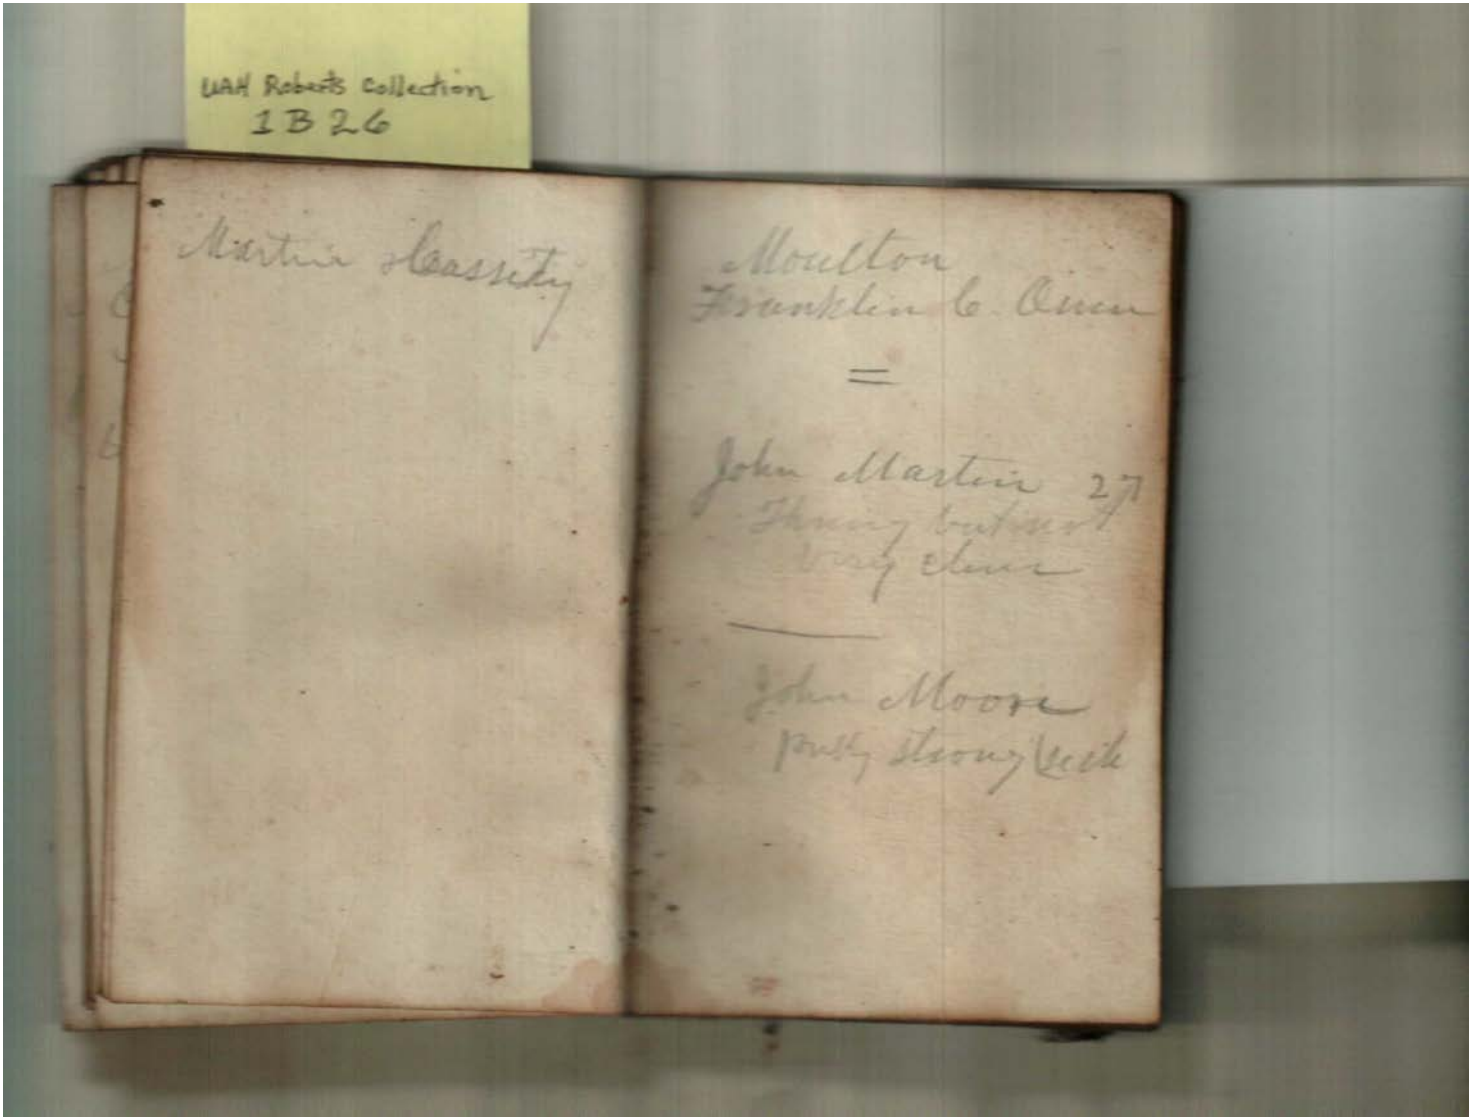 UAH Roberts Collection
1B26
Martin Cassity
Moulton
Franklin C. Owen
=
John Martin 27
very clever
John Moore
strong